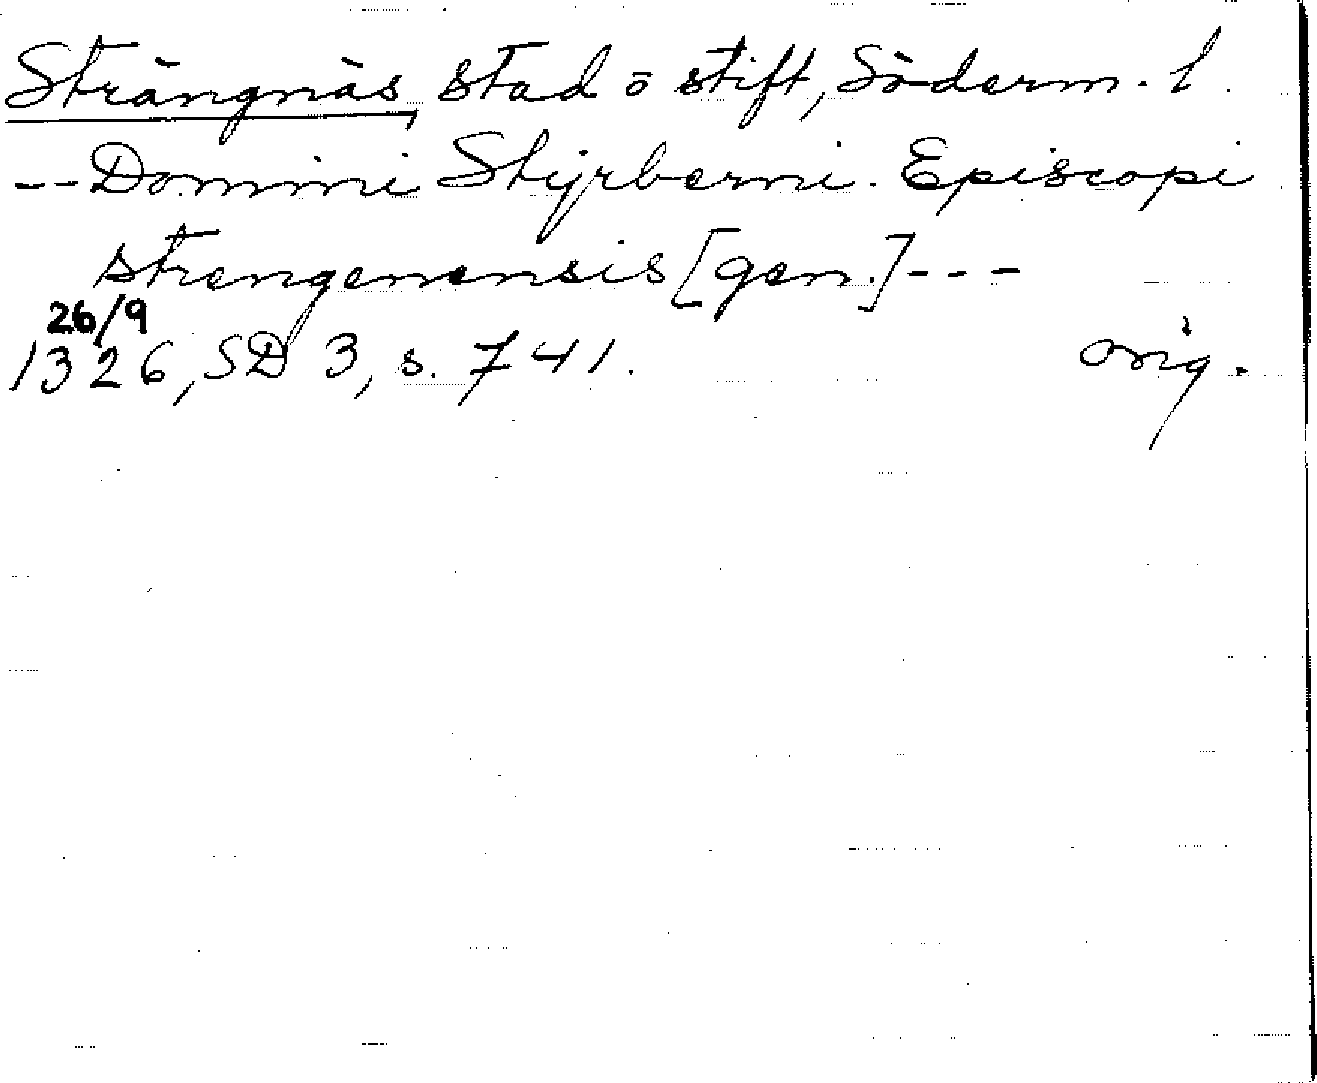 Strängnäs, stad o stift, Söderm. l.
-- Domini Styrberni. Episcopi
strengenensis [gen.] ---
26/9
1326, SD 3, s. 741. orig.